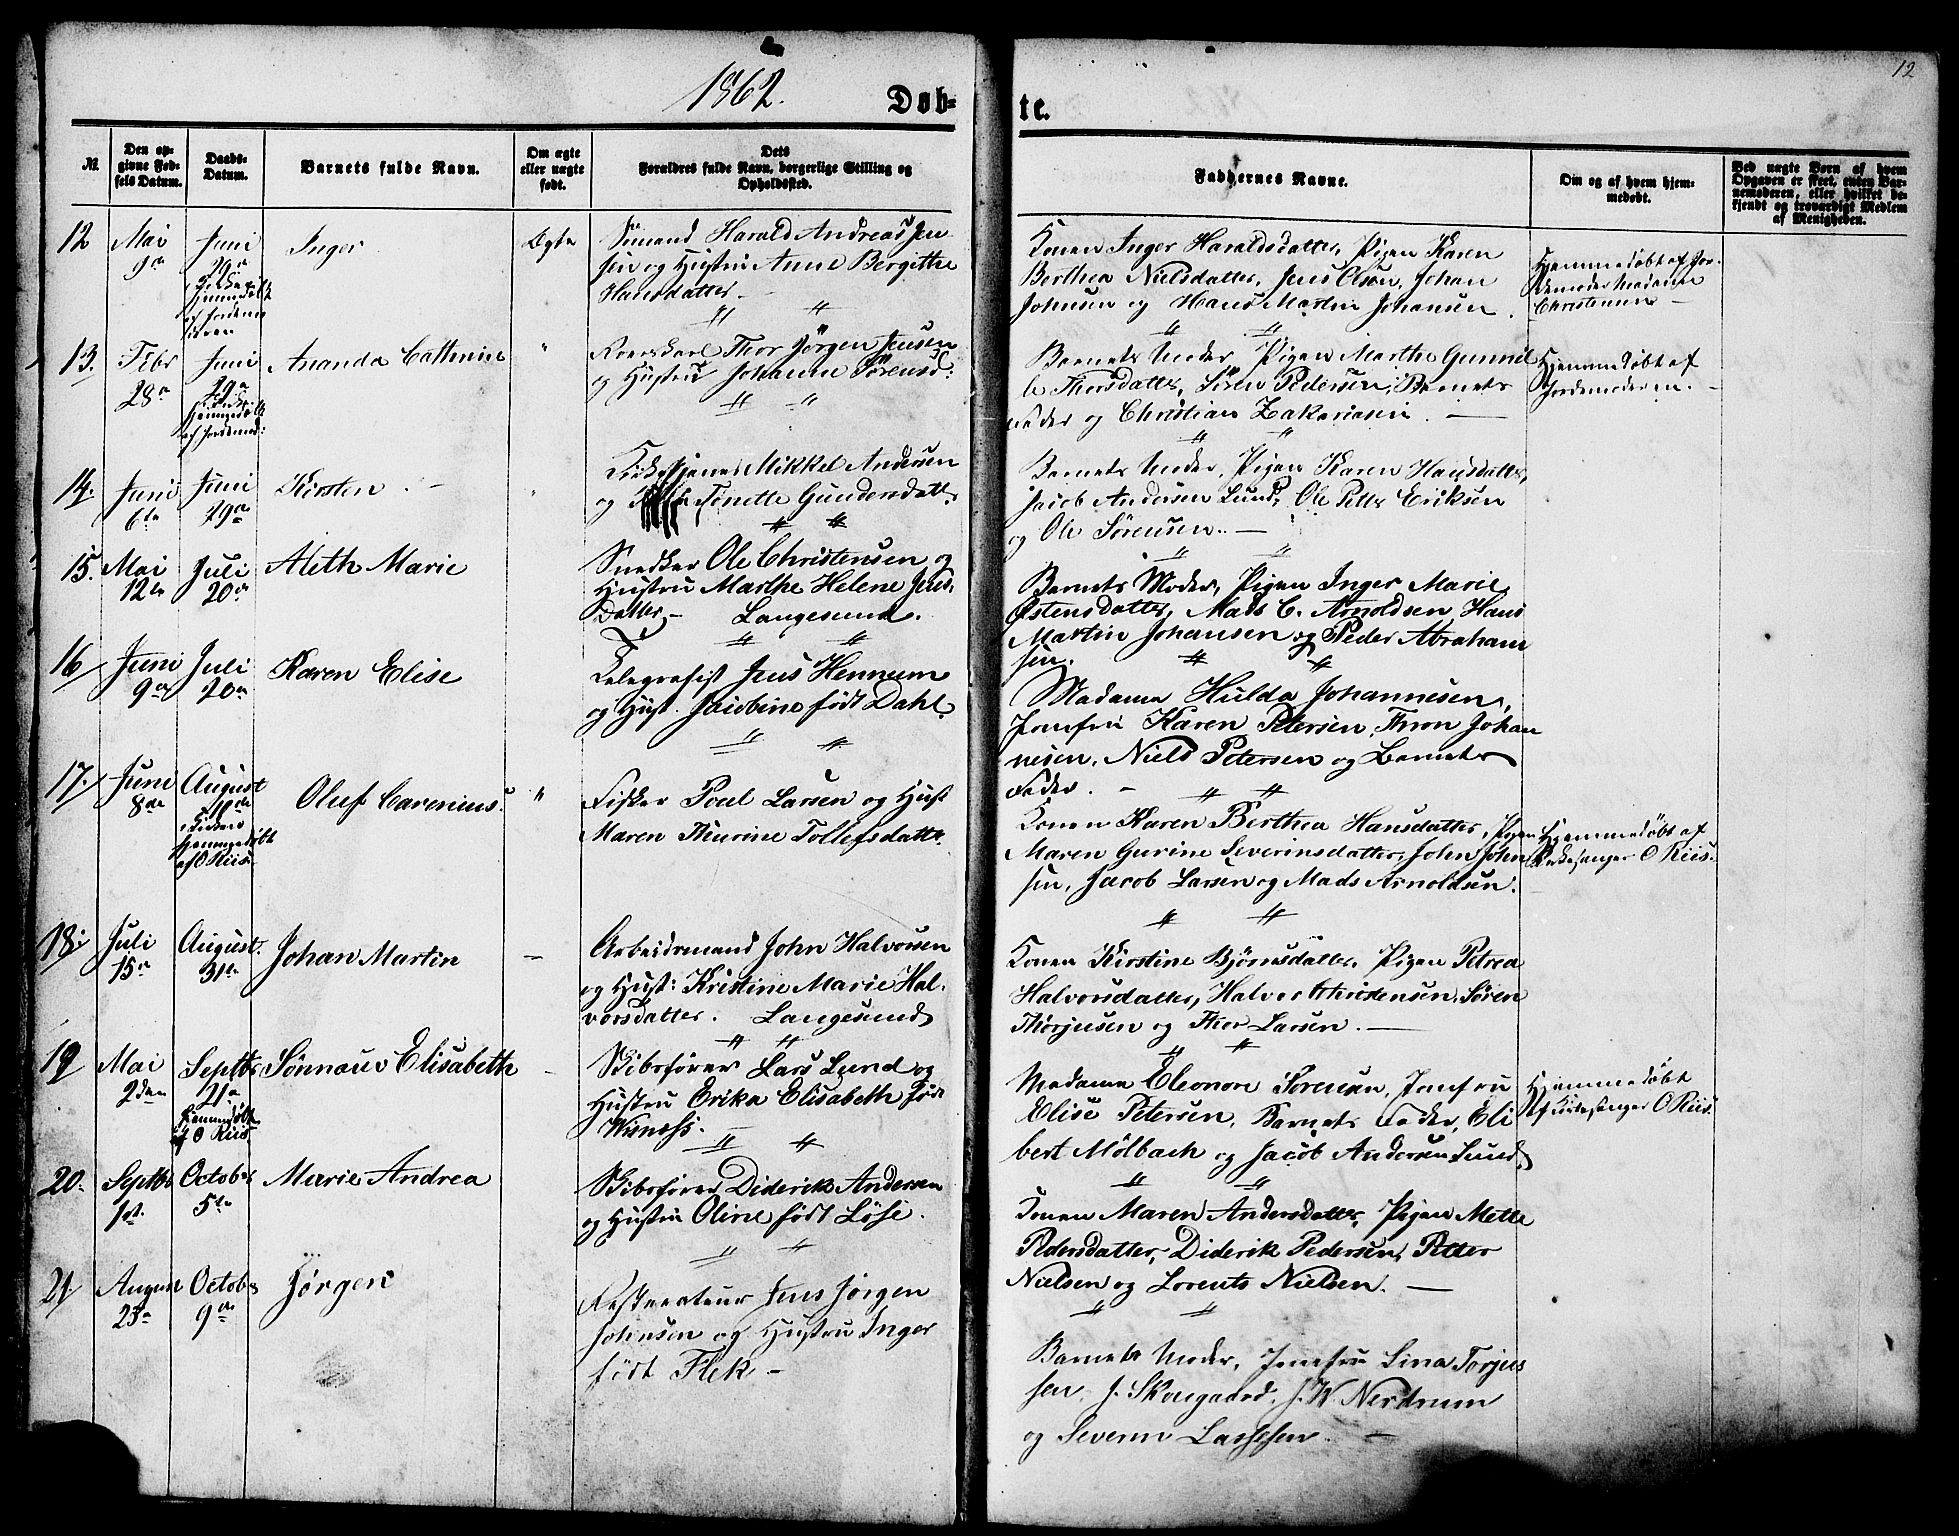 1862.
12
Døb-
te.
№
Den op-
givne Fød-
sels Datum.
Daabs-
Datum.
Barnets fulde Navn.
Om ægte
eller uægte
født.
Dets
Forældres fulde Navn, borgerlige Stilling og
Opholdssted.
Faddernes Navne.
Om og af hvem hjem-
medøbt.
Ved uægte Børn af hvem
Opgaven er skeet, enten Bar-
nemoderen, eller hvilket be-
kjendt og troværdigt Medlem
af Menigheden.
12
Mai
9de
Juni
29de
i Kirken
hjemmedøbt
af Jordemo
deren
Inger
Ægte
Sömand Harald Andreas Jen
sen og Hustru Anne Bergitthe
Hansdatter.
Konen Inger Haraldsdatter, Pigen Karen
Berthea Nielsdatter, Jens Olsen, Johan
Johnsen og Hans Martin Johansen.
Hjemmedøbt af Jor-
demoder Madame
Christensen
13.
Febr
28de
Juni
29de
i Kirken
hjemmedøbt
af Jordemod:
Ananda Cathrine
"
Thor Jörgen Jensen
og Hustru Johanne Sörensd:
Barnets Moder, Pigen Marthe Gunnil
de Thorsdatter, Sören Pedersen, Barnets
Fader og Christian Zakariasen.
Hjemmedøbt af
Jordemoderen.
14.
Juni
6te
Juni
29de
Kirsten.
"
Mikkel Andersen
og Tonette Gundersdatter
Barnets Moder, Pigen Karen Hansdatter,
Jacob Andersen Lund, Ole Petter Eriksen
og Ole Sörensen.
15.
Mai
12te
Juli
20de
Aleth Marie
Snedker Ole Christensen og
Hustru Marthe Helene Jens-
datter. Langesund.
Barnets Moder, Pigen Inger Marie
Østensdatter, Mads C. Arnoldsen, Hans
Martin Johansen og Peder Abraham
sen.
16
Juni
9de
Juli
20de
Karen Elise
Telegrafist Jens Hennum
og Hust. Jacobine født Dahl.
Madame Hulda Johannesen,
Jomfru Karen Petersen, Thron Johan
nesen, Niels Petersen og Barnets
Fader.
17.
Juni
8de
August
i Kirken
hjemmedøbt
af O Riis
Oluf Carenius.
"
Fisker Poul Larsen og Hust
Maren Thurine Tollefsdatter.
Konen Karen Berthea Hansdatter, Pigen
Maren Gurine Severinsdatter, John John
sen, Jacob Larsen og Mads Arnoldsen.
Hjemmedøbt af
Kirkesanger O Riis.
18.
Juli
15de
August.
31te
Johan Martin
Arbeidsmand John Halvorsen
og Hust: Kristine Marie Hal-
vorsdatter. Langesund
Konen Kirstine Bjørnsdatter, Pigen Petrea
Halvorsdatter, Halvor Christensen, Sören
Thorjusen og Thor Larsen.
19
Mai
2den
Septbr
21de
hjemmedøbt
af O Riis
Sönnauv Elisabeth
Skibsfører Lars Lund og
Hustru Erika Elisabeth født
Wisness.
Madame Eleonore Sorensen, Jomfru
Elise Petersen, Barnets Fader, Eli
bert Mölbach og Jacob Andersen Lund.
Hjemmedøbt
af Kirkesanger O Riis.
20.
Septbr
1st.
October
5te
Marie Andrea
Skibsfører Diderik Andersen
og Hustru Oline født Löse.
Konen Maren Andersdatter, Pigen Mette
Pedersdatter, Diderik Pedersen, Petter
Nielsen og Lorents Nielsen.
21
August
23de
October
9de
Jörgen
Restaurateur Jens Jörgen
Johnsen og Hustru Inger
født Flek
Barnets Moder, Jomfru Lina Torjus
sen, J. Skougaard, J. W. Nerdrum
og Severin Larssen.